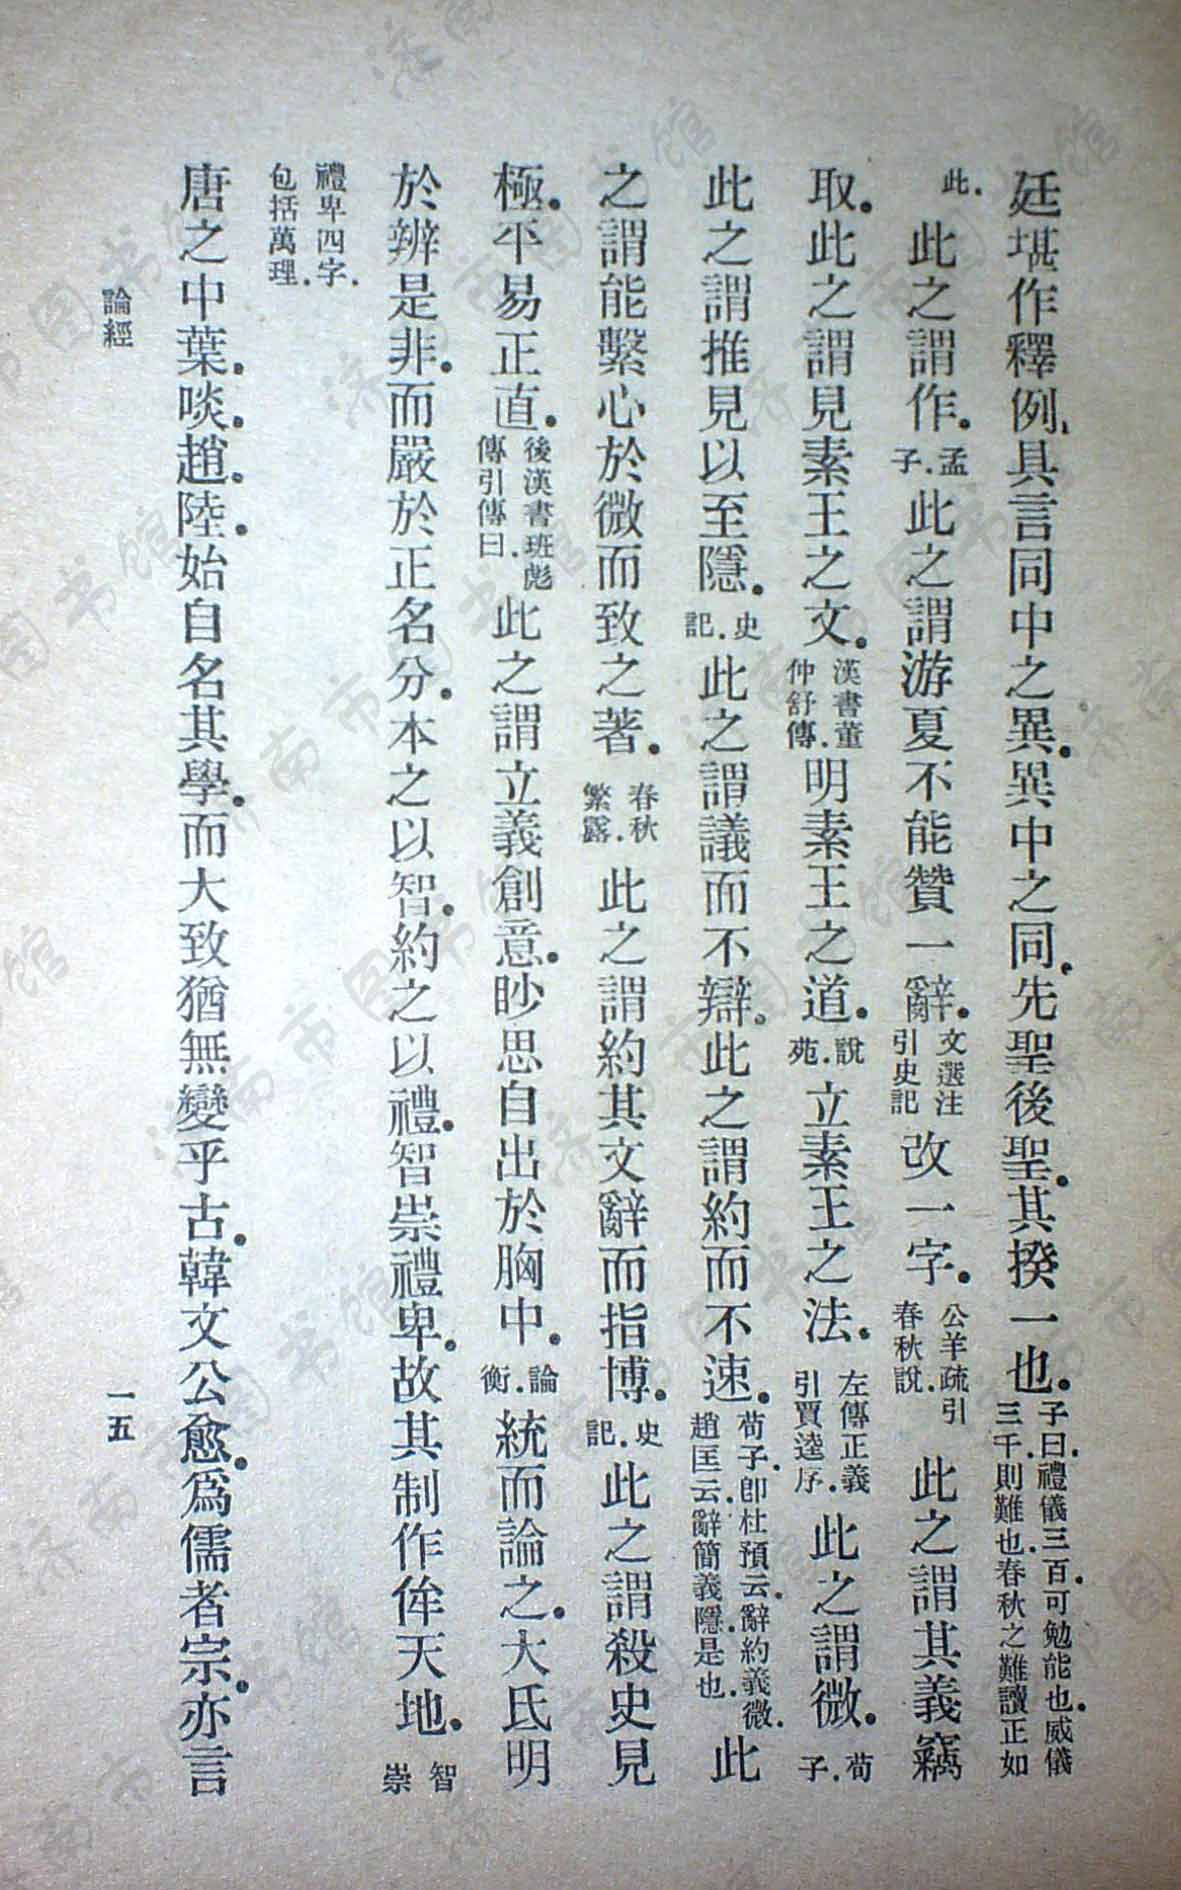 廷堪作釋例、具言同中之異。異中之同。先聖後聖。其揆一也。子曰。禮儀三百。可勉能也。威儀三千。則難也。春秋之難讀正如
此。此之謂作。孟子。此之謂游夏不能贊一辭。文選注引史記改一字。公羊疏引春秋說。此之謂其義竊
取。此之謂見素王之文。漢書董仲舒傳。明素王之道。說苑。立素王之法。左傳正義引賈逵序。此之謂微。荀子。
此之謂推見以至隱。史記。此之謂議而不辯。此之謂約而不速。荀子。卽杜預云。辭約義微。趙匡云。辭簡義隱。是也。此
之謂能繫心於微而致之著。春秋繁露。此之謂約其文辭而指博。史記。此之謂殺史見
極。平易正直。後漢書班彪傳引傳曰。此之謂立義創意。眇思自出於胸中。論衡。統而論之。大氐明
於辨是非。而嚴於正名分。本之以智。約之以禮。智崇禮卑。故其制作侔天地。智崇
禮卑四字。包括萬理。
唐之中葉。啖。趙。陸。始自名其學。而大致猶無變乎古。韓文公愈。爲儒者宗。亦言
論經
一五